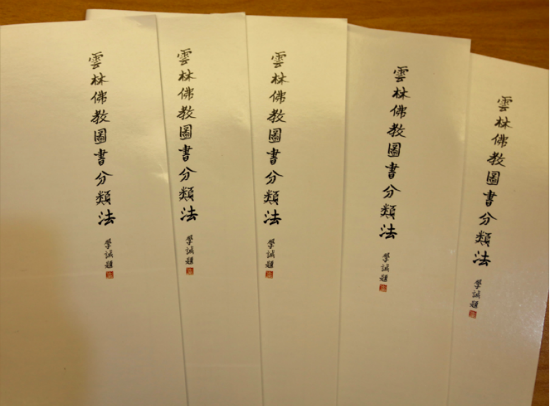 雲林佛教圖書分類法
學誠題
雲林佛教圖書分類法
學誠題
雲林佛教圖書分類法
學誠題
雲林佛教圖書分類法
學誠題
雲林佛教圖書分類法
學誠題